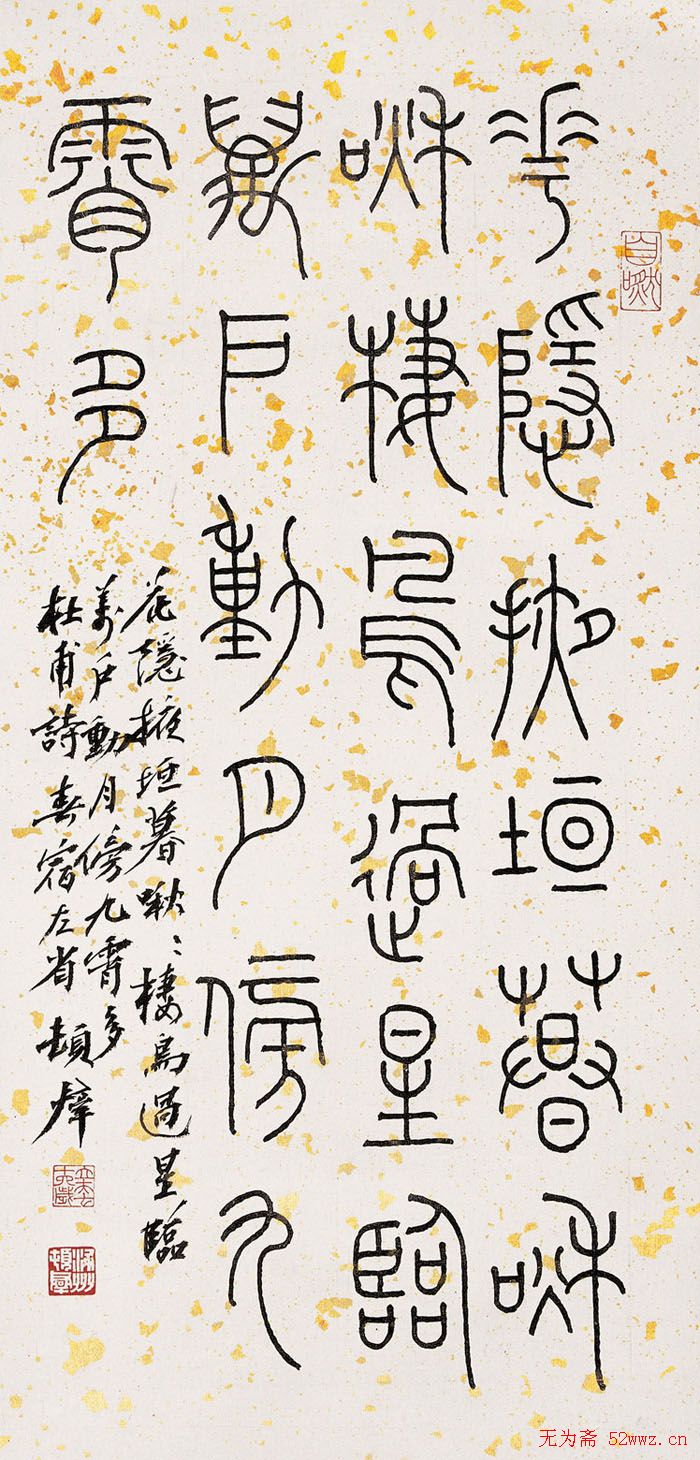 花隱掖垣暮啾
啾棲鳥過星臨
萬戶動月傍九
霄多
花隱掖垣暮啾〻棲鳥過星臨
萬戶動月傍九霄多
杜甫詩春宿左省
无为斋 52wwz.cn